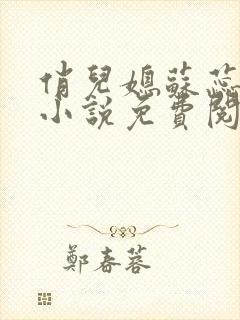 俏兒媳蘇蕊
小說免費閱
鄭春蓉